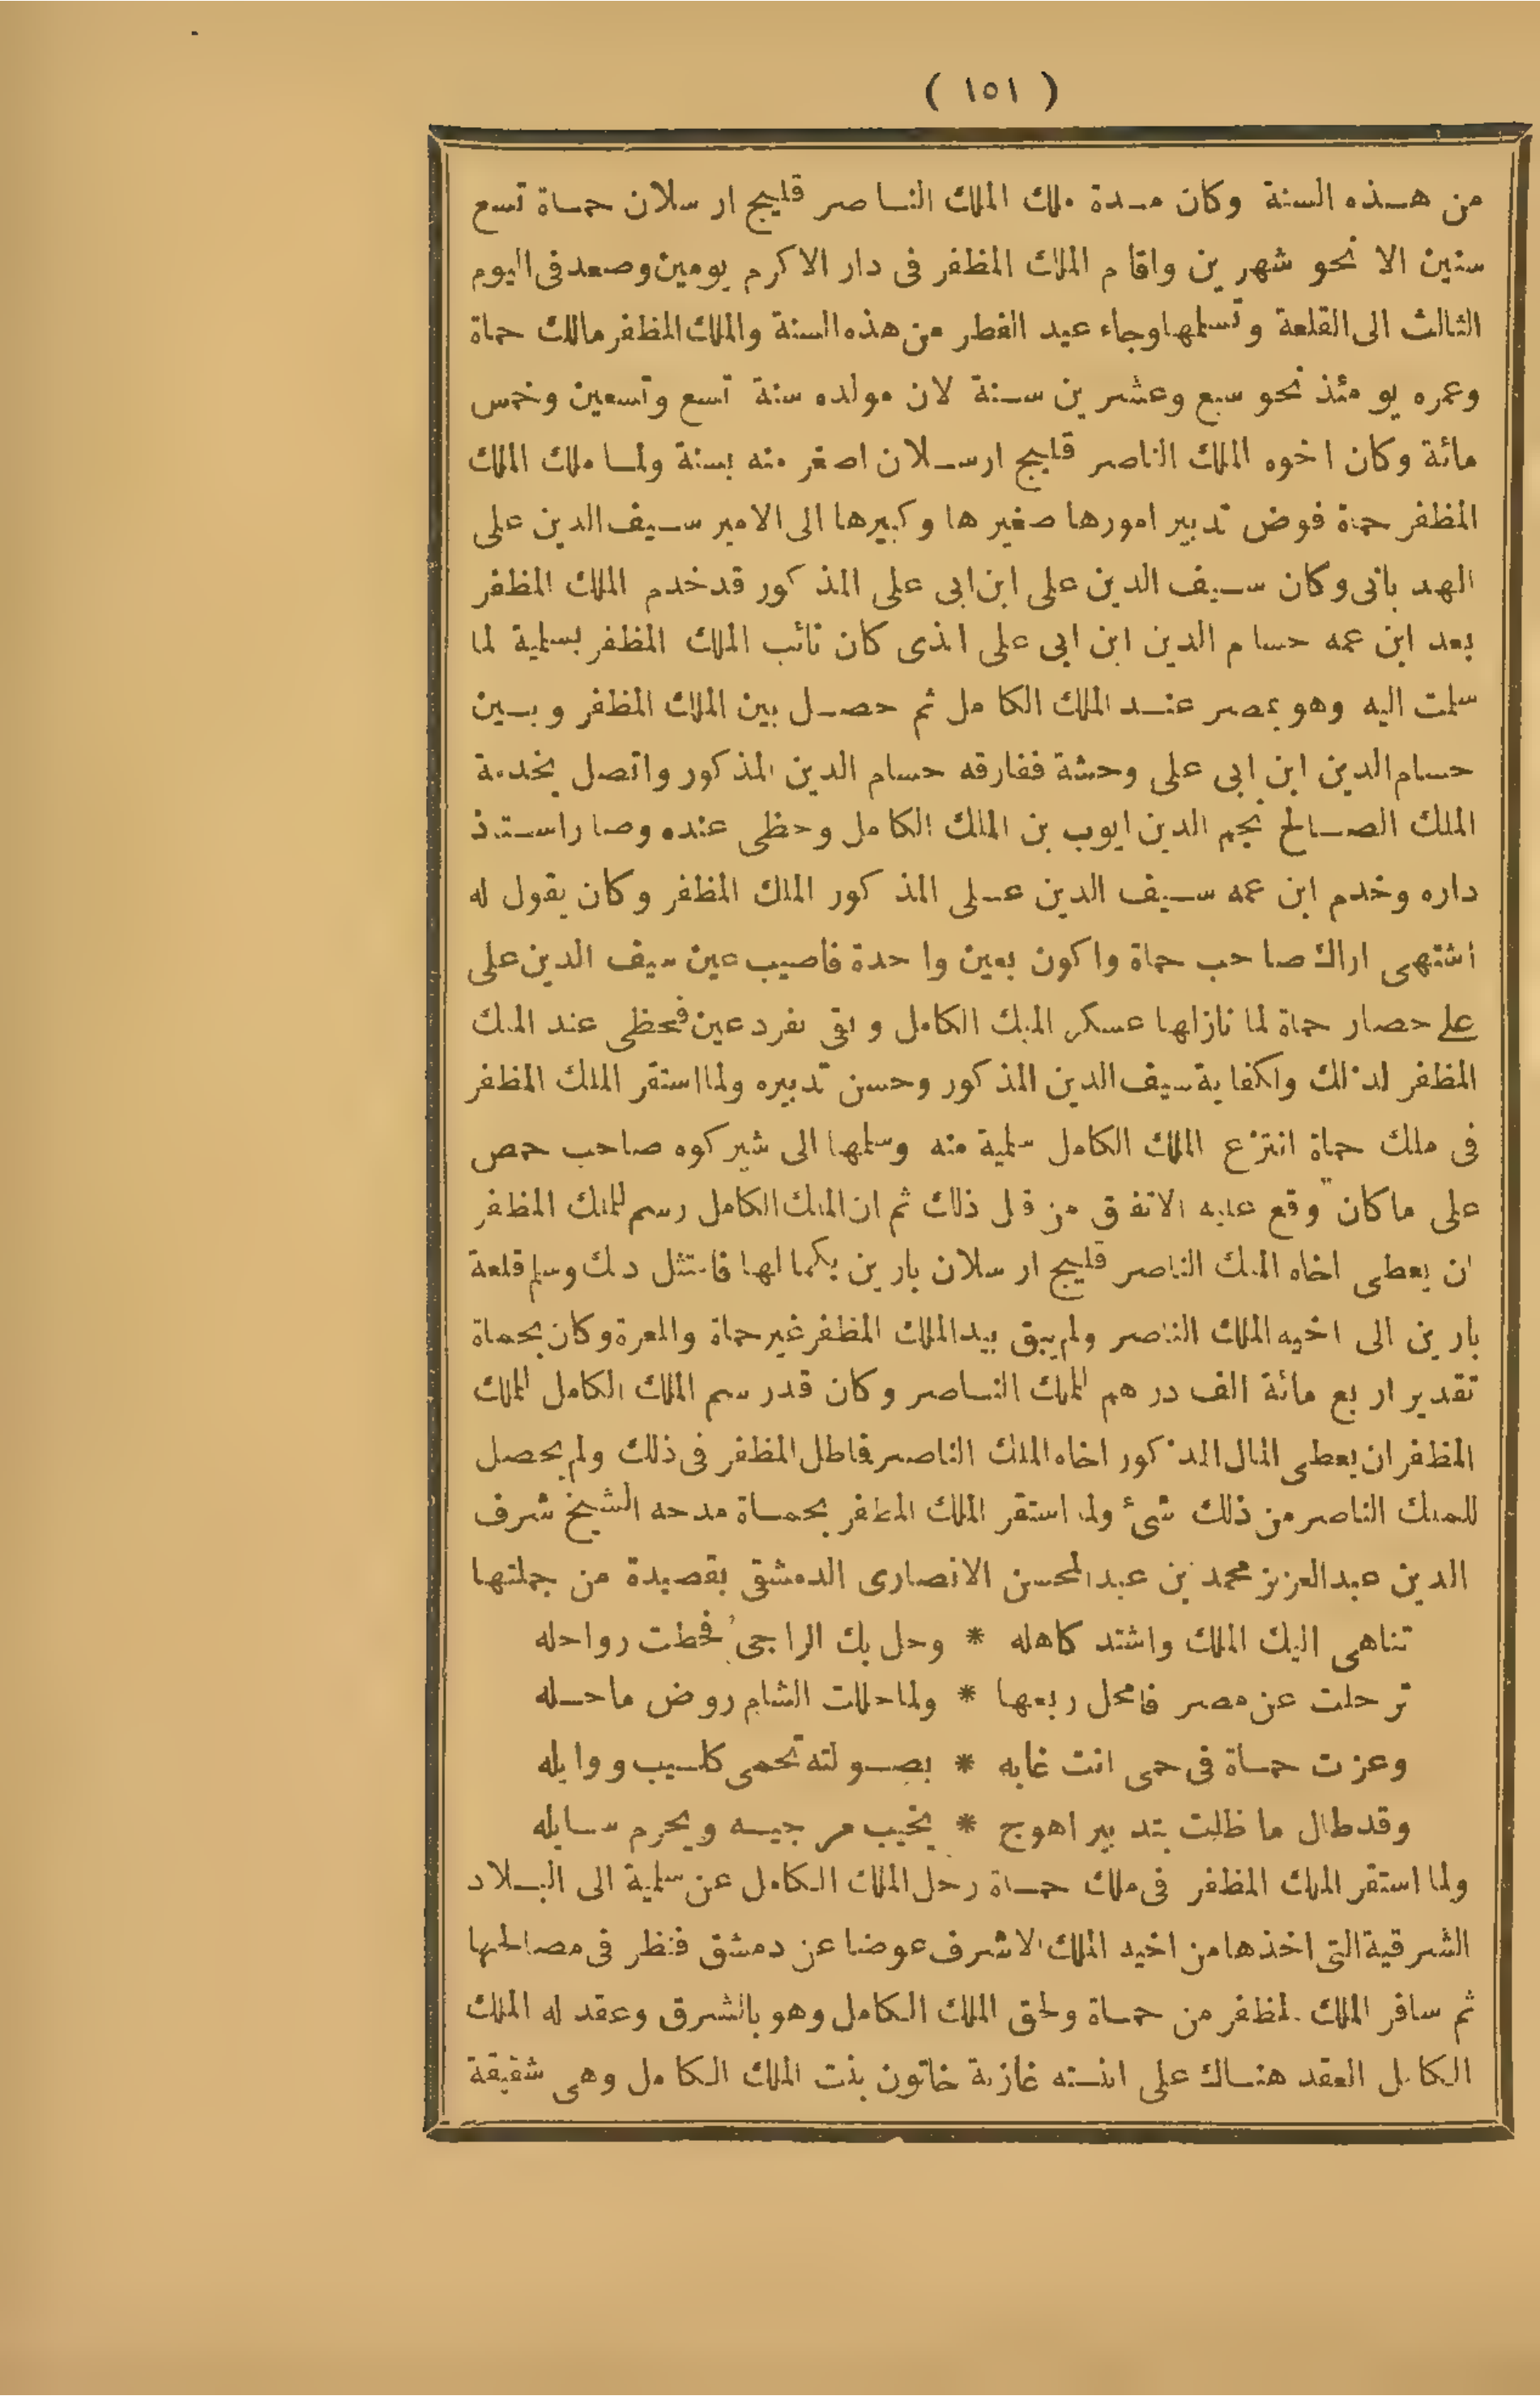 ( ١٥١ )
من هذه السنة وكان مدة ملك الملك الناصر قليج ارسلان حماة تسع
سنين الا نحو شهرين واقام الملك المظفر فى دار الاكرم يومين وصعد فى اليوم
الثالث الى القلعة وتسلمها وجاء عيد الفطر من هذه السنة والملك المظفر مالك حماة
وعمره يومئذ نحو سبع وعشرين سنة لان مولده سنة تسع وتسعين وخمس
مائة وكان اخوه الملك الناصر قليج ارسلان اصغر منه بسنة ولما ملك الملك
المظفر حماة فوض تدبير امورها صغيرها وكبيرها الى الامير سيف الدين على
الهدبانى وكان سيف الدين على ابن ابى على المذكور قد خدم الملك المظفر
بعد ابن عمه حسام الدين ابن ابى على الذى كان نائب الملك المظفر بسلمية لما
سلمت اليه وهو بمصر عند الملك الكامل ثم حصل بين الملك المظفر وبين
حسام الدين ابن ابى على وحشة ففارقه حسام الدين المذكور واتصل بخدمة
الملك الصالح نجم الدين ايوب بن الملك الكامل وحظى عنده وصار استذ
داره وخدم ابن عمه سيف الدين على المذكور الملك المظفر وكان يقول له
اشتهى اراك صاحب حماة واكون بعين واحدة فاصيب عين سيف الدين على
على حصار حماة لما نازلها عسكر الملك الكامل وبقى بفرد عين فحظى عند الملك
المظفر لذلك ولكفاية سيف الدين المذكور وحسن تدبيره ولما استقر الملك المظفر
فى ملك حماة انتزع الملك الكامل سلمية منه وسلمها الى شيركوه صاحب حمص
على ما كان وقع عليه الاتفق من قبل ذلك ثم ان الملك الكامل رسم للملك المظفر
ان يعطى اخاه الملك الناصر قليج ارسلان بارين بكمالها فامتثل ذلك وسلم قلعة
بارين الى اخيه الملك الناصر ولم يبق بيد الملك المظفر غير حماة والمعرة وكان بحماة
تقدير اربع مائة الف درهم للملك الناصر وكان قد رسم الملك الكامل للملك
المظفر ان يعطى المال المذكور اخاه الملك الناصر فاطل المظفر فى ذلك ولم يحصل
للملك الناصر من ذلك شئ ولما استقر الملك المظفر بحماة مدحه الشيخ شرف
الدين عبد العزيز محمد بن عبد المحسن الانصارى الدمشقى بقصيدة من جملتها
تناهى اليك الملك واشتد كاهله * وحل بك الراجى فحطت رواحله
ترحلت عن مصر فامحل ربعها * ولما حللت الشام روض ماحله
وعزت حماة فى حمى انت غابه * بصولته تحمى كليب ووايله
وقد طال ما ظلت بتدبير اهوج * يخيب مرجيه ويحرم سايله
ولما استقر الملك المظفر فى ملك حماة رحل الملك الكامل عن سلمية الى البلاد
الشرقية التى اخذها من اخيه الملك الاشرف عوضا عن دمشق فنظر فى مصالحها
ثم سافر الملك المظفر من حماة ولحق الملك الكامل وهو بالشرق وعقد له الملك
الكامل العقد هناك على ابنته غازية خاتون بنت الملك الكامل وهى شقيقة